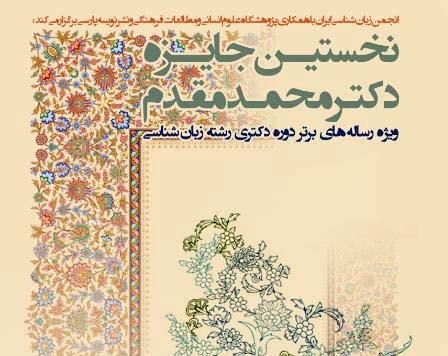 انجمن زبان‌شناسی ایران با همکاری پژوهشگاه علوم انسانی و مطالعات فرهنگی و نشر نویسه پارسی برگزار می‌کند:
نخستین جایزه
دکتر محمد مقدم
ویژه رساله‌های برتر دوره دکتری رشته زبان‌شناسی